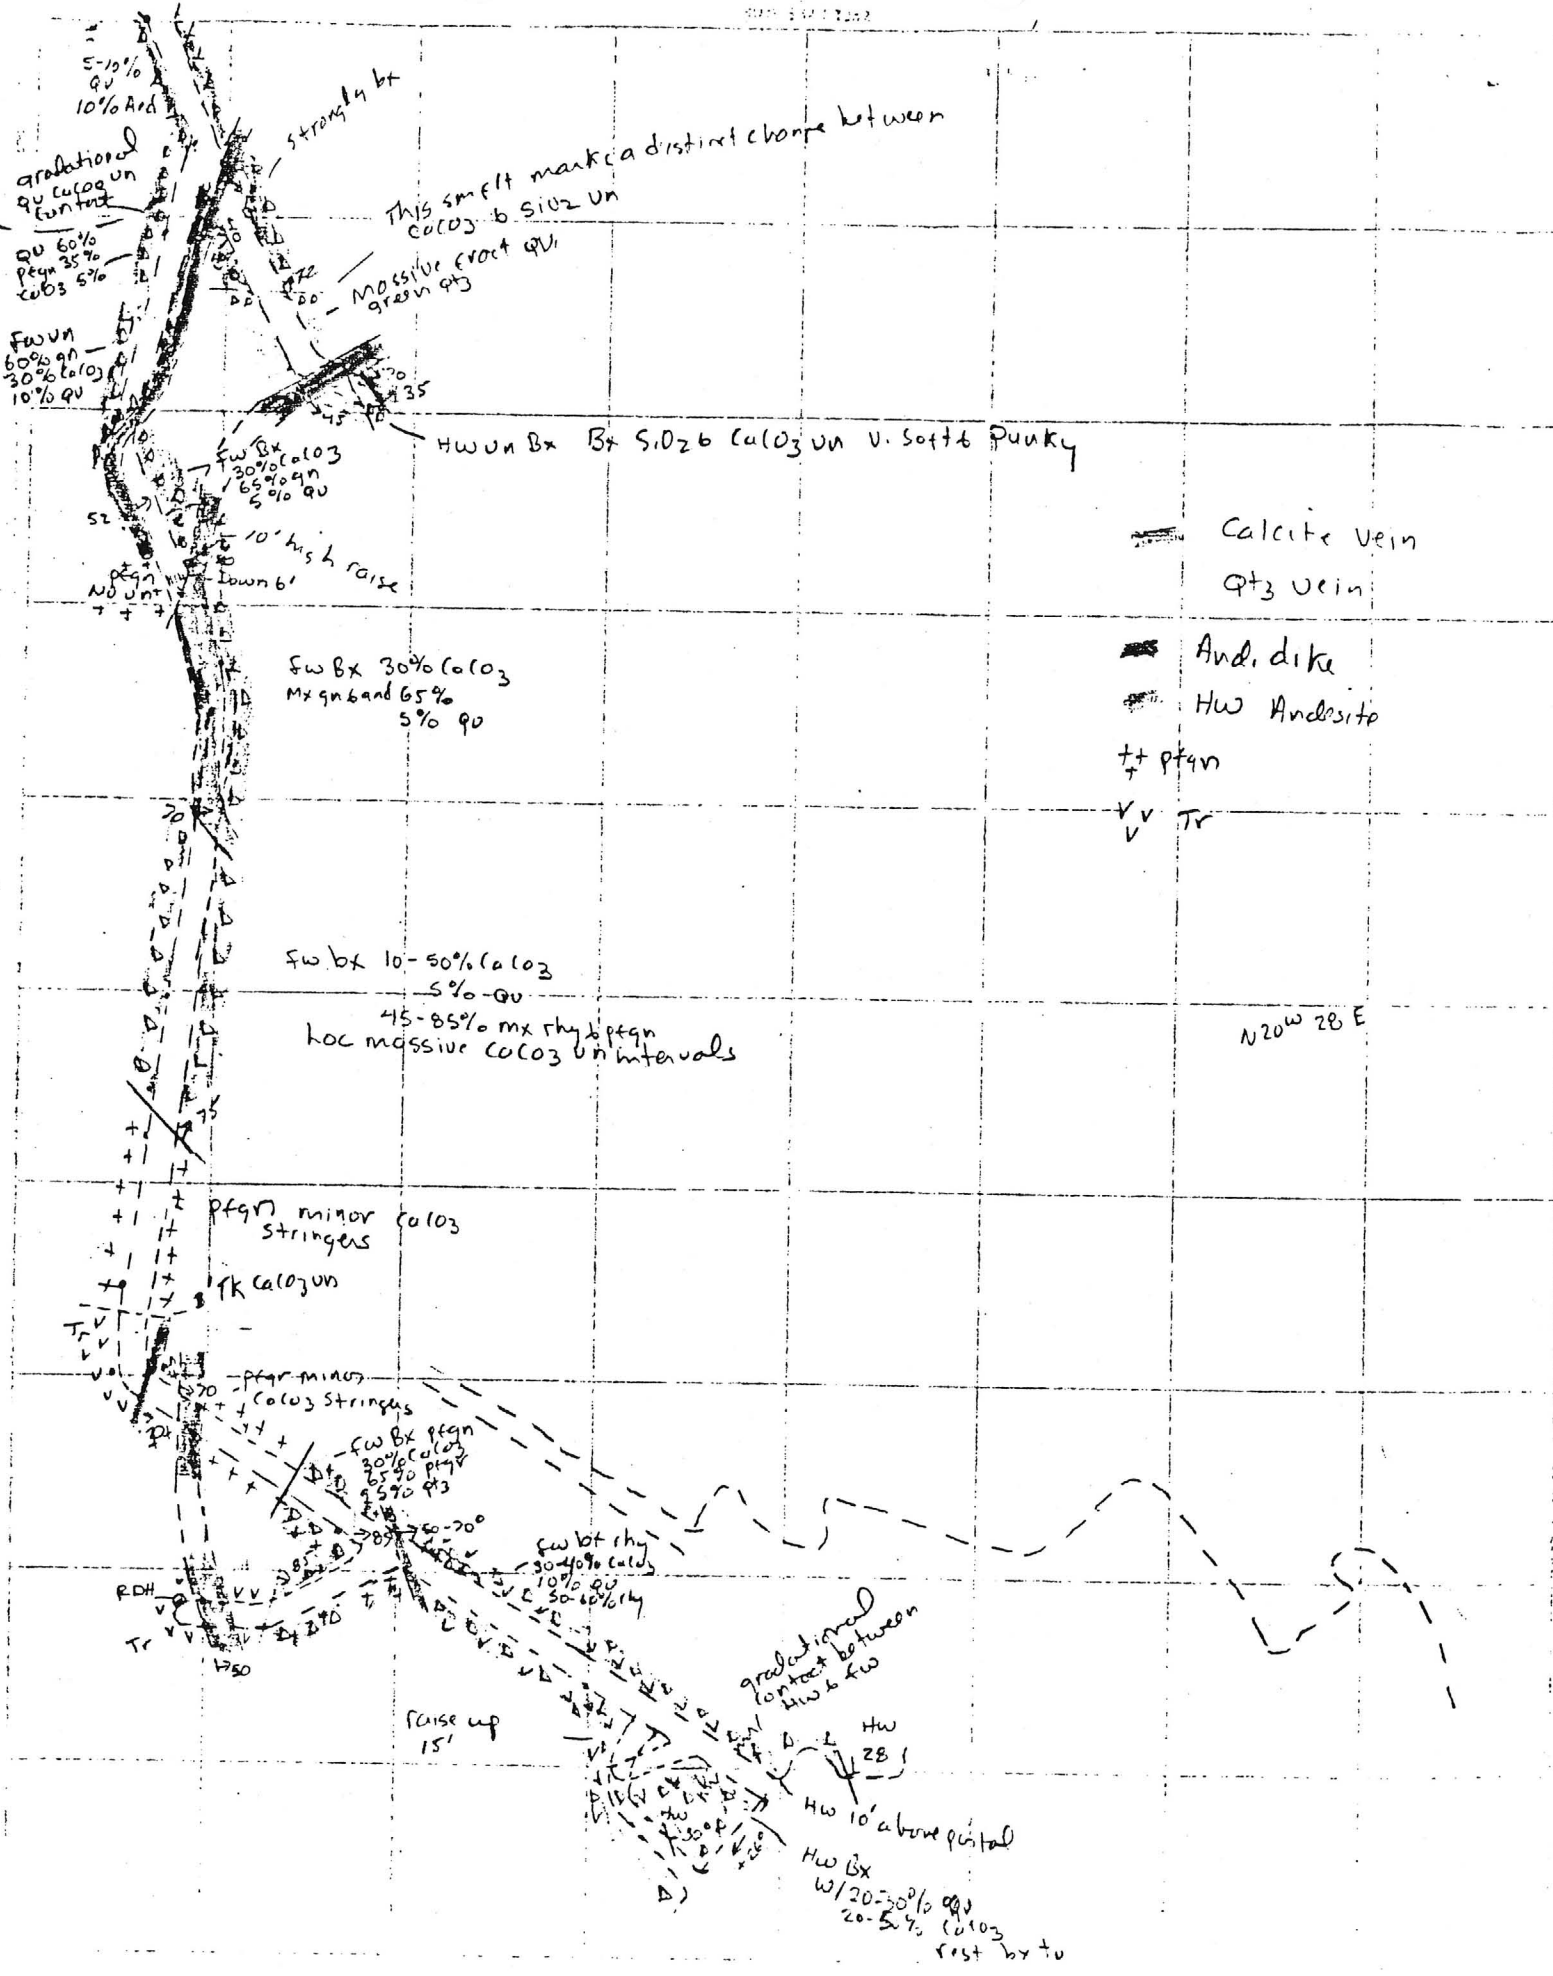 5-10%
QV
10% And
strongly bx
gradational
QV CaCO3 vn
contact
This smflt marks a distinct change between
CaCO3 & SiO2 vn
QV 60%
ptgn 35%
CaCO3 5%
72
Massive fract QV,
green qtz
FW vn
60% gn
30% CaCO3
10% QV
70
35
45
HW vn Bx Bx SiO2 & CaCO3 vn v. soft & Punky
FW Bx
30% CaCO3
65% gn
5% QV
52
10' high raise
Down 6'
ptgn
No vn
Calcite vein
Qtz vein
And. dike
HW Andesite
ptgn
Tr
FW Bx 30% CaCO3
Mx gn band 65%
5% QV
70
FW bx 10-50% CaCO3
5% QV
45-85% mx rhy & ptgn
Loc massive CaCO3 vn intervals
N20W 28 E
75
ptgn minor CaCO3
stringers
TK CaCO3 vn
Tr
70
ptgn minor
CaCO3 stringers
FW Bx ptgn
30% CaCO3
65% ptgn
5% qtz
85
50-70°
FW bx rhy
30-40% CaCO3
10% QV
50-60% rhy
85
RDH
Tr
50
gradational
contact between
HW & FW
raise up
15'
HW
28
HW 10' above portal
HW
30°
HW Bx
W/20-30% QV
20-50% CaCO3
rest bx tv